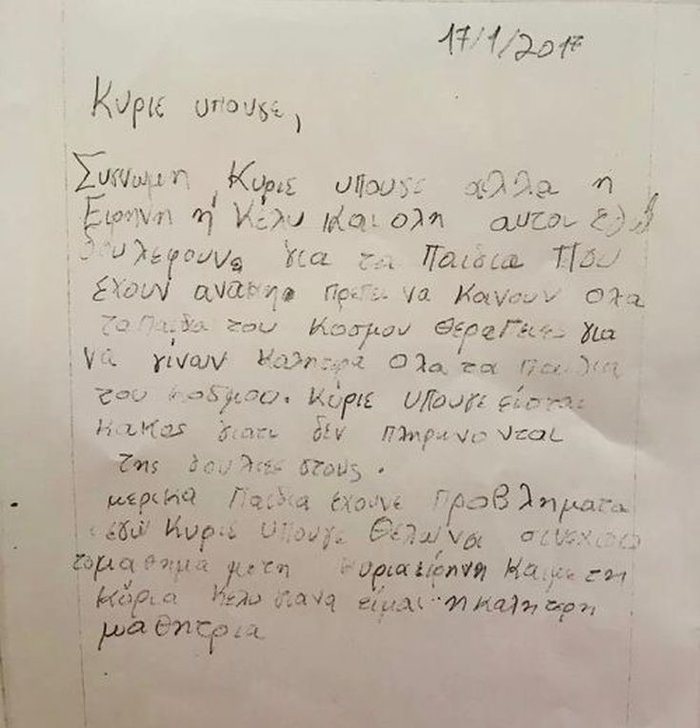 17/1/2017
Κυριε υπουγε,
Συγνωμη Κυριε υπουγε αλλα η
Ειρηνη ή Κέλυ και ολη αυτοι εδώ
δουλεφουνε για τα Παιδια Που
έχουν αναγκη πρεπει να κανουν ολα
τα Παιδια του Κοσμου θεραΠειες για
να γίνουν καλητερα ολα τα παιδια
του κοσμου. Κύριε υπουγε είσται
κακος γιατι δεν πληρωνονται
της δουλιες τους.
μερικα Παιδια έχουνε Προβληματα
εγώ Κυριε υπουγε θελω να συνεχισω
το μαθημα με τη κυρια ειρηνη Και με τη
Κύρια Κελυ για να είμαι η καλητερη
μαθητρια